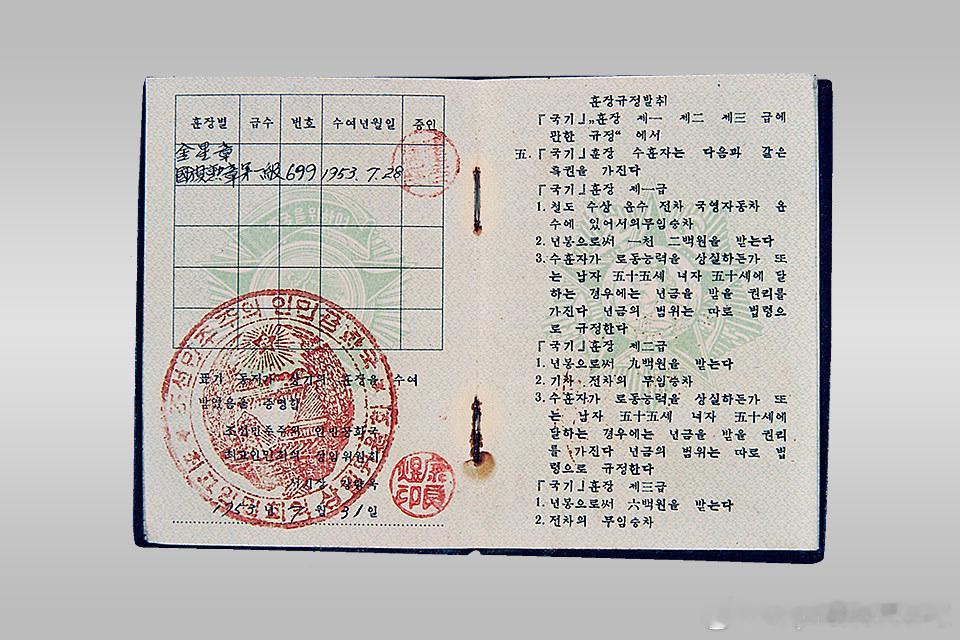 훈장별 급수 번호 수여년월일 증인
金星章
國旗勲章 第一級 699 1953.7.28
조선민주주의인민공화국
최고인민회의상임위원회
표기 동지가 상기의 훈장을 수여
받았음을 증명함
조선민주주의 인민공화국
최고인민회의 상임위원회
서기장 강량욱
1953년 7월 31일
康良煜印
훈장규정발취
「국기」„훈장 제一 제二 제三 급에
관한 규정“ 에서
五.「국기」훈장 수훈자는 다음과 같은
특권을 가진다
「국기」훈장 제一급
1. 철도 수상 운수 전차 국영자동차 운
수에 있어서의 무임승차
2. 년봉으로써 一천 二백원을 받는다
3. 수훈자가 로동능력을 상실하든가 또
는 남자 五十五세 녀자 五十세에 달
하는 경우에는 년금을 받을 권리를
가진다 년금의 범위는 따로 법령으
로 규정한다
「국기」훈장 제二급
1. 년봉으로써 九백원을 받는다
2. 기차. 전차의 무임승차
3. 수훈자가 로동능력을 상실하든가 또
는 남자 五十五세 녀자 五十세에
달하는 경우에는 년금을 받을 권리
를 가진다 년금의 범위는 따로 법
령으로 규정한다
「국기」훈장 제三급
1. 년봉으로써 六백원을 받는다
2. 전차의 무임승차